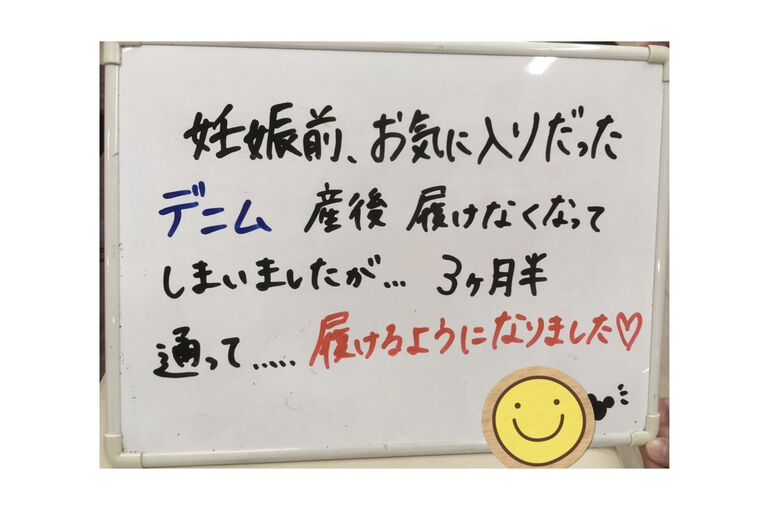 妊娠前、お気に入りだった
デニム 産後 履けなくなって
しまいましたが... 3ヶ月半
通って..... 履けるようになりました♡